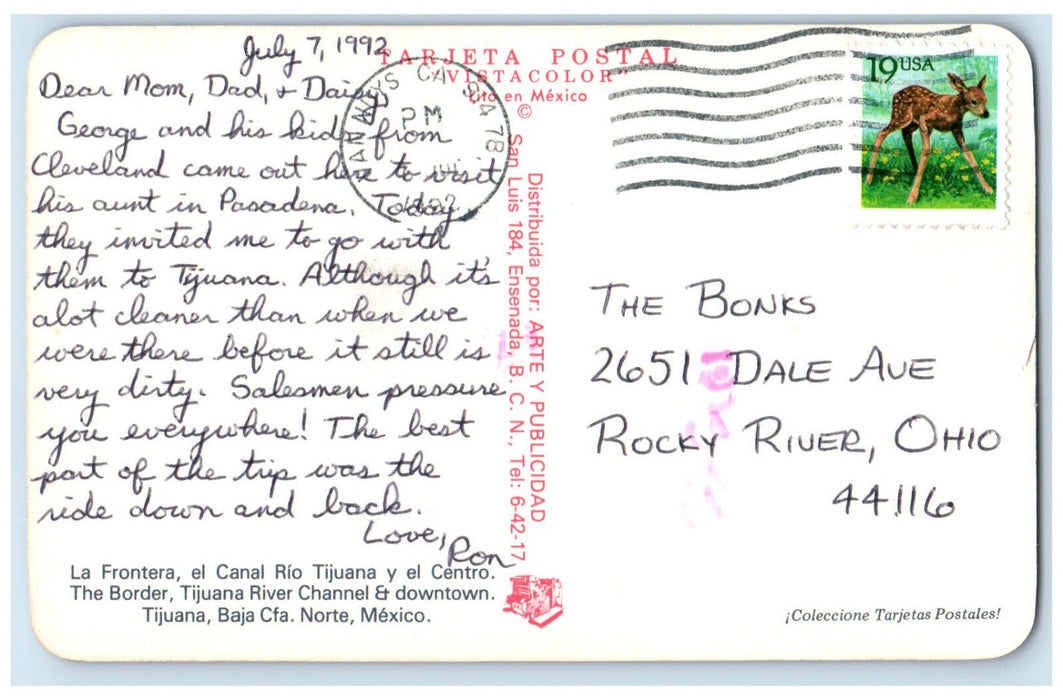 July 7, 1992
Dear Mom, Dad, + Daisy,
George and his kids from
Cleveland came out here to visit
his aunt in Pasadena. Today,
they invited me to go with
them to Tijuana. Although it's
alot cleaner than when we
were there before it still is
very dirty. Salesmen pressure
you everywhere! The best
part of the trip was the
ride down and back.
Love,
Ron
La Frontera, el Canal Río Tijuana y el Centro.
The Border, Tijuana River Channel & downtown.
Tijuana, Baja Cfa. Norte, México.
TARJETA POSTAL
"VISTACOLOR"
Lito en México
©
Distribuida por: ARTE Y PUBLICIDAD
San Luis 184, Ensenada, B. C. N., Tel: 6-42-17
CA
PM
19USA
THE BONKS
2651 DALE AVE
ROCKY RIVER, OHIO
44116
¡Coleccione Tarjetas Postales!